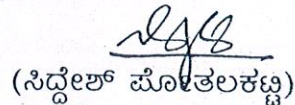 (ಸಿದ್ದೇಶ್ ಪೋತಲಕಟ್ಟಿ)